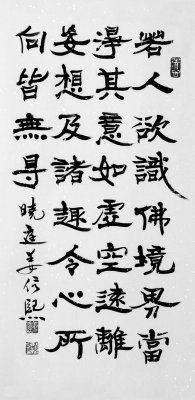 若人欲識佛境界當
淨其意如虛空遠離
妄想及諸趣令心所
向皆無㝵 曉庭姜信熙